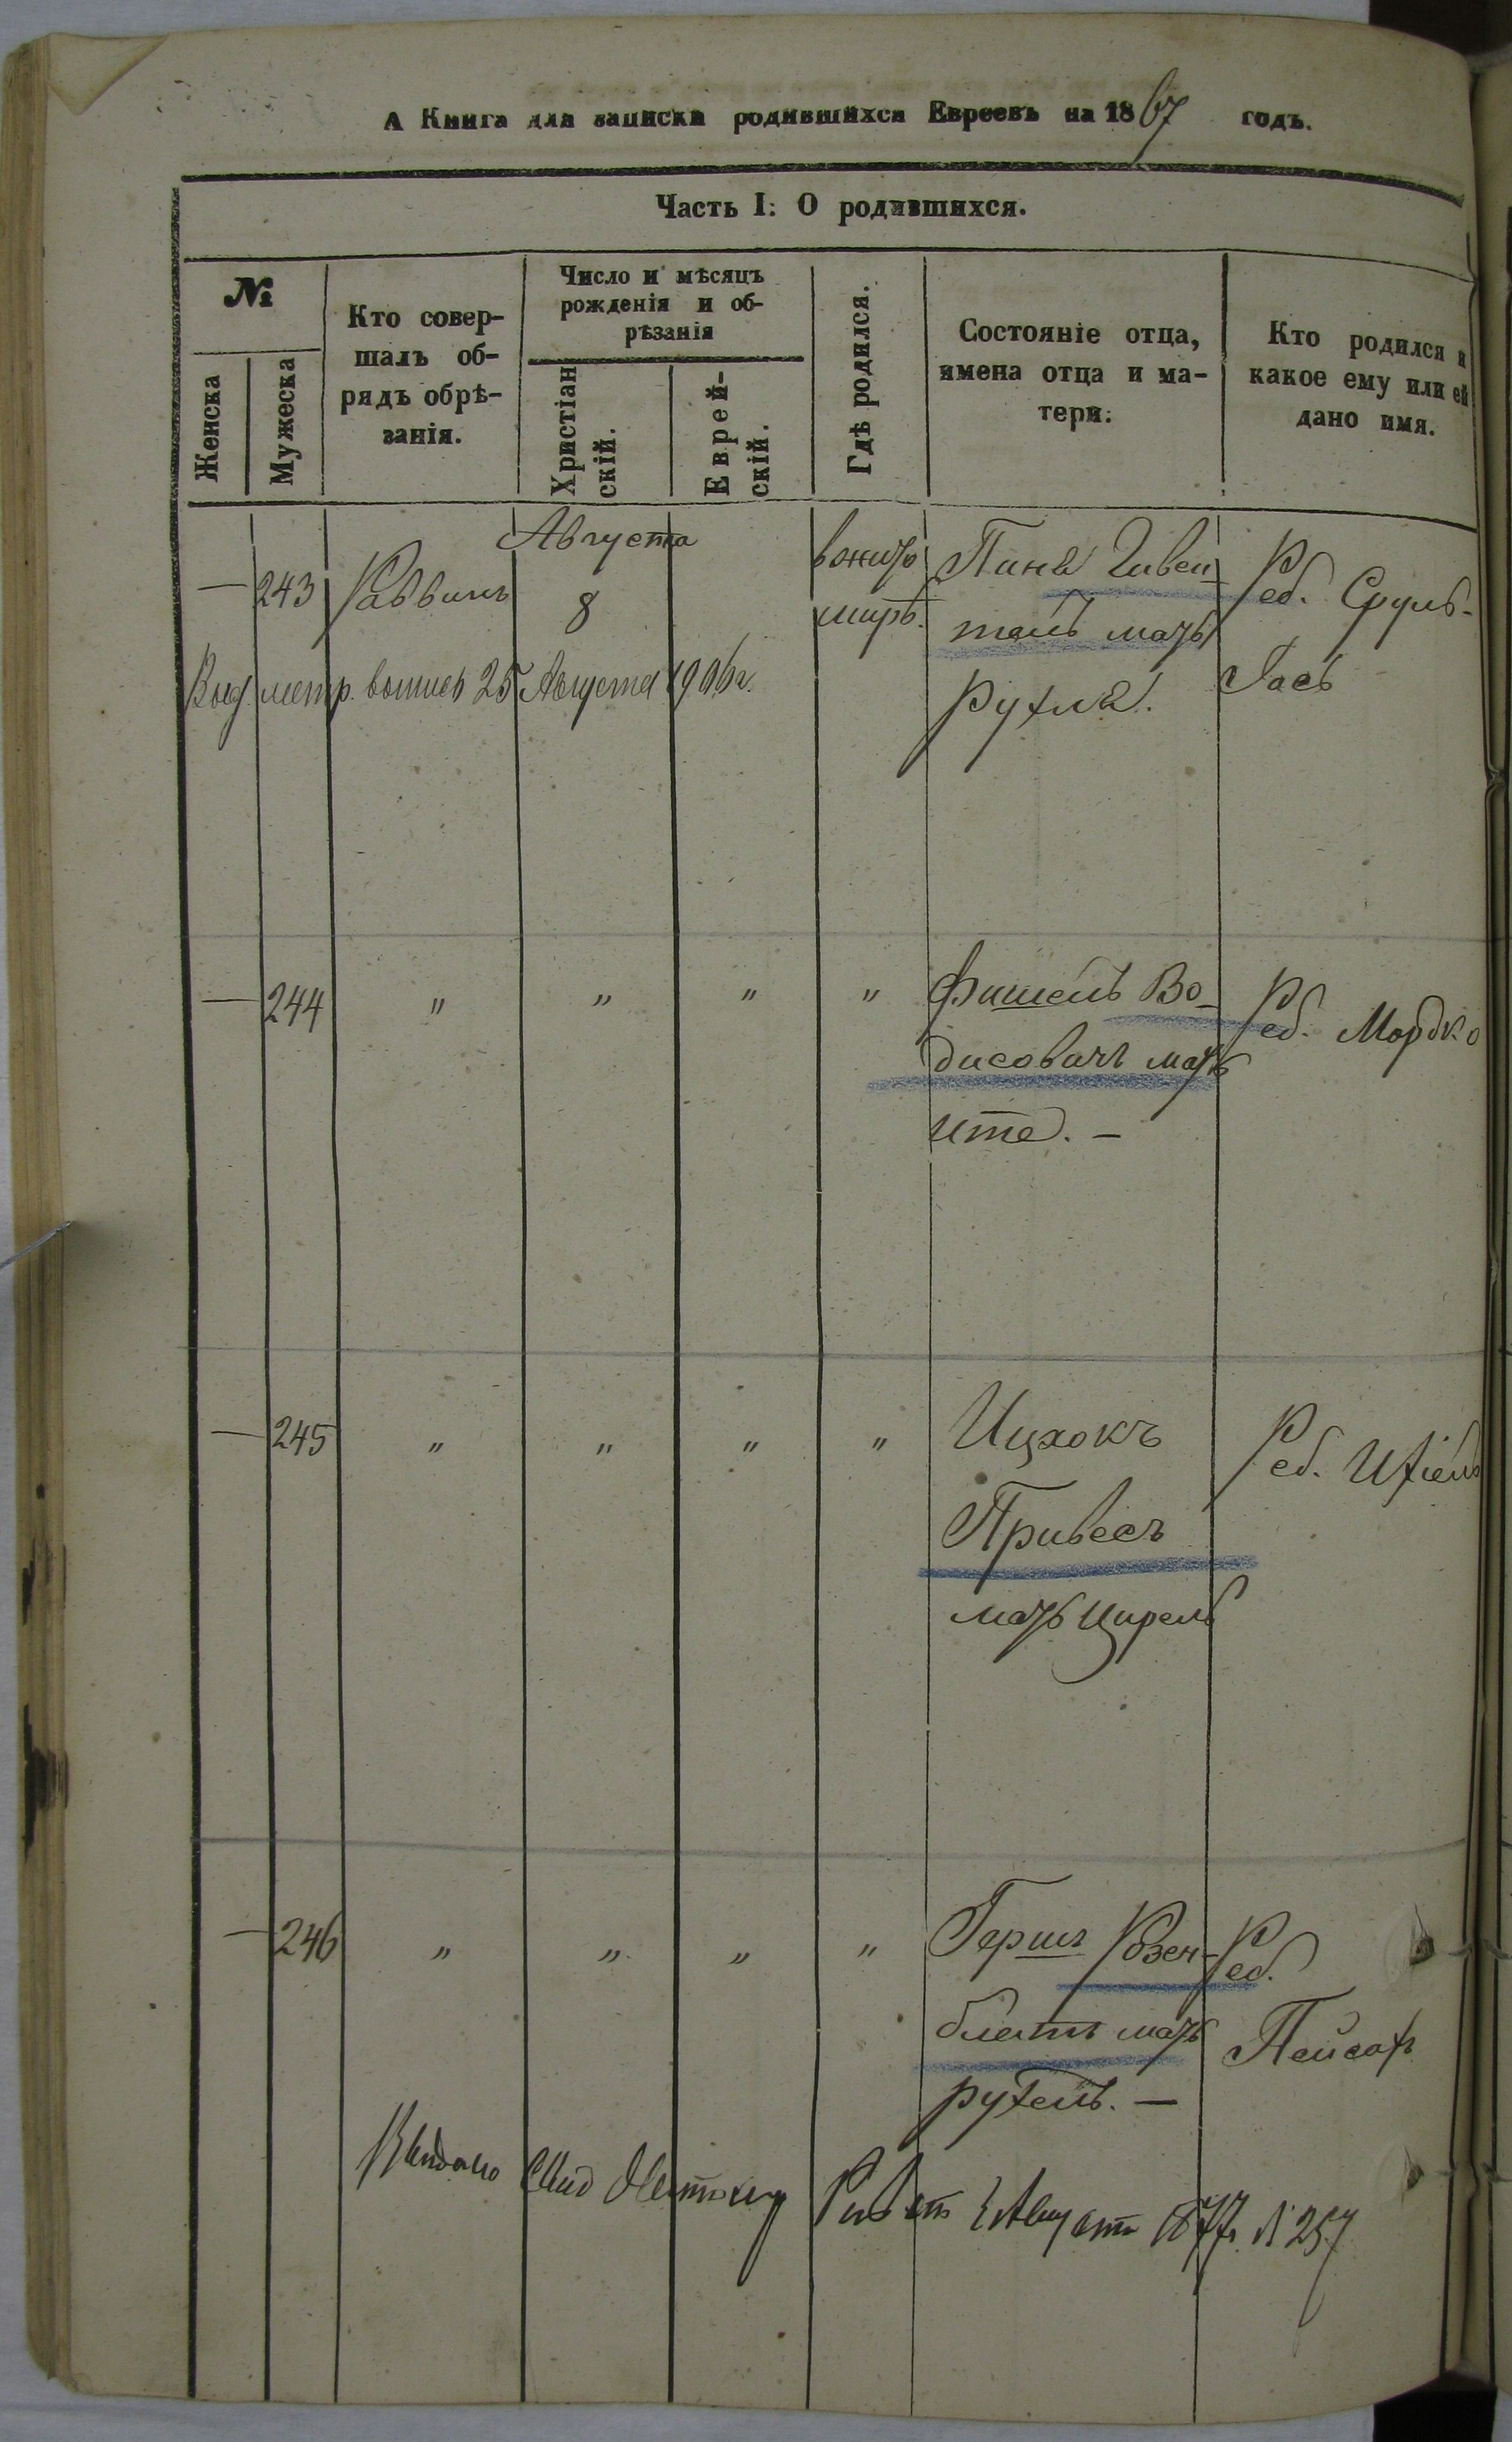 А Книга для записки родившихся Евреевъ на 1867 годъ.
Часть I: О родившихся.
№
Женска
Мужеска
Кто совер-
шалъ об-
рядъ обрѣ-
занія.
Число и мѣсяцъ
рожденія и об-
рѣзанія
Христіан
скій.
Еврей-
скій.
Гдѣ родился.
Состояніе отца,
имена отца и ма-
тери.
Кто родился и
какое ему или ей
дано имя.
— 243 Раввинъ
Августа
8
вжито
миръ.
Пиня
мать
Рухля.
Реб. Сруль-
Іась
Выд. метр. выпись 25 Августа 1906 г.
— 244 " " " "
Фишель Во-
дисовичъ мать
Ите. —
Реб. Мордко
— 245 " " " "
Ицхокъ
Привесъ
мать Цирель
Реб. Ихіель
— 246 " " " "
Гершъ Розен-
блатъ мать
Рухель. —
Реб.
Пейсахъ
Выдано Августа 1877 г. № 257